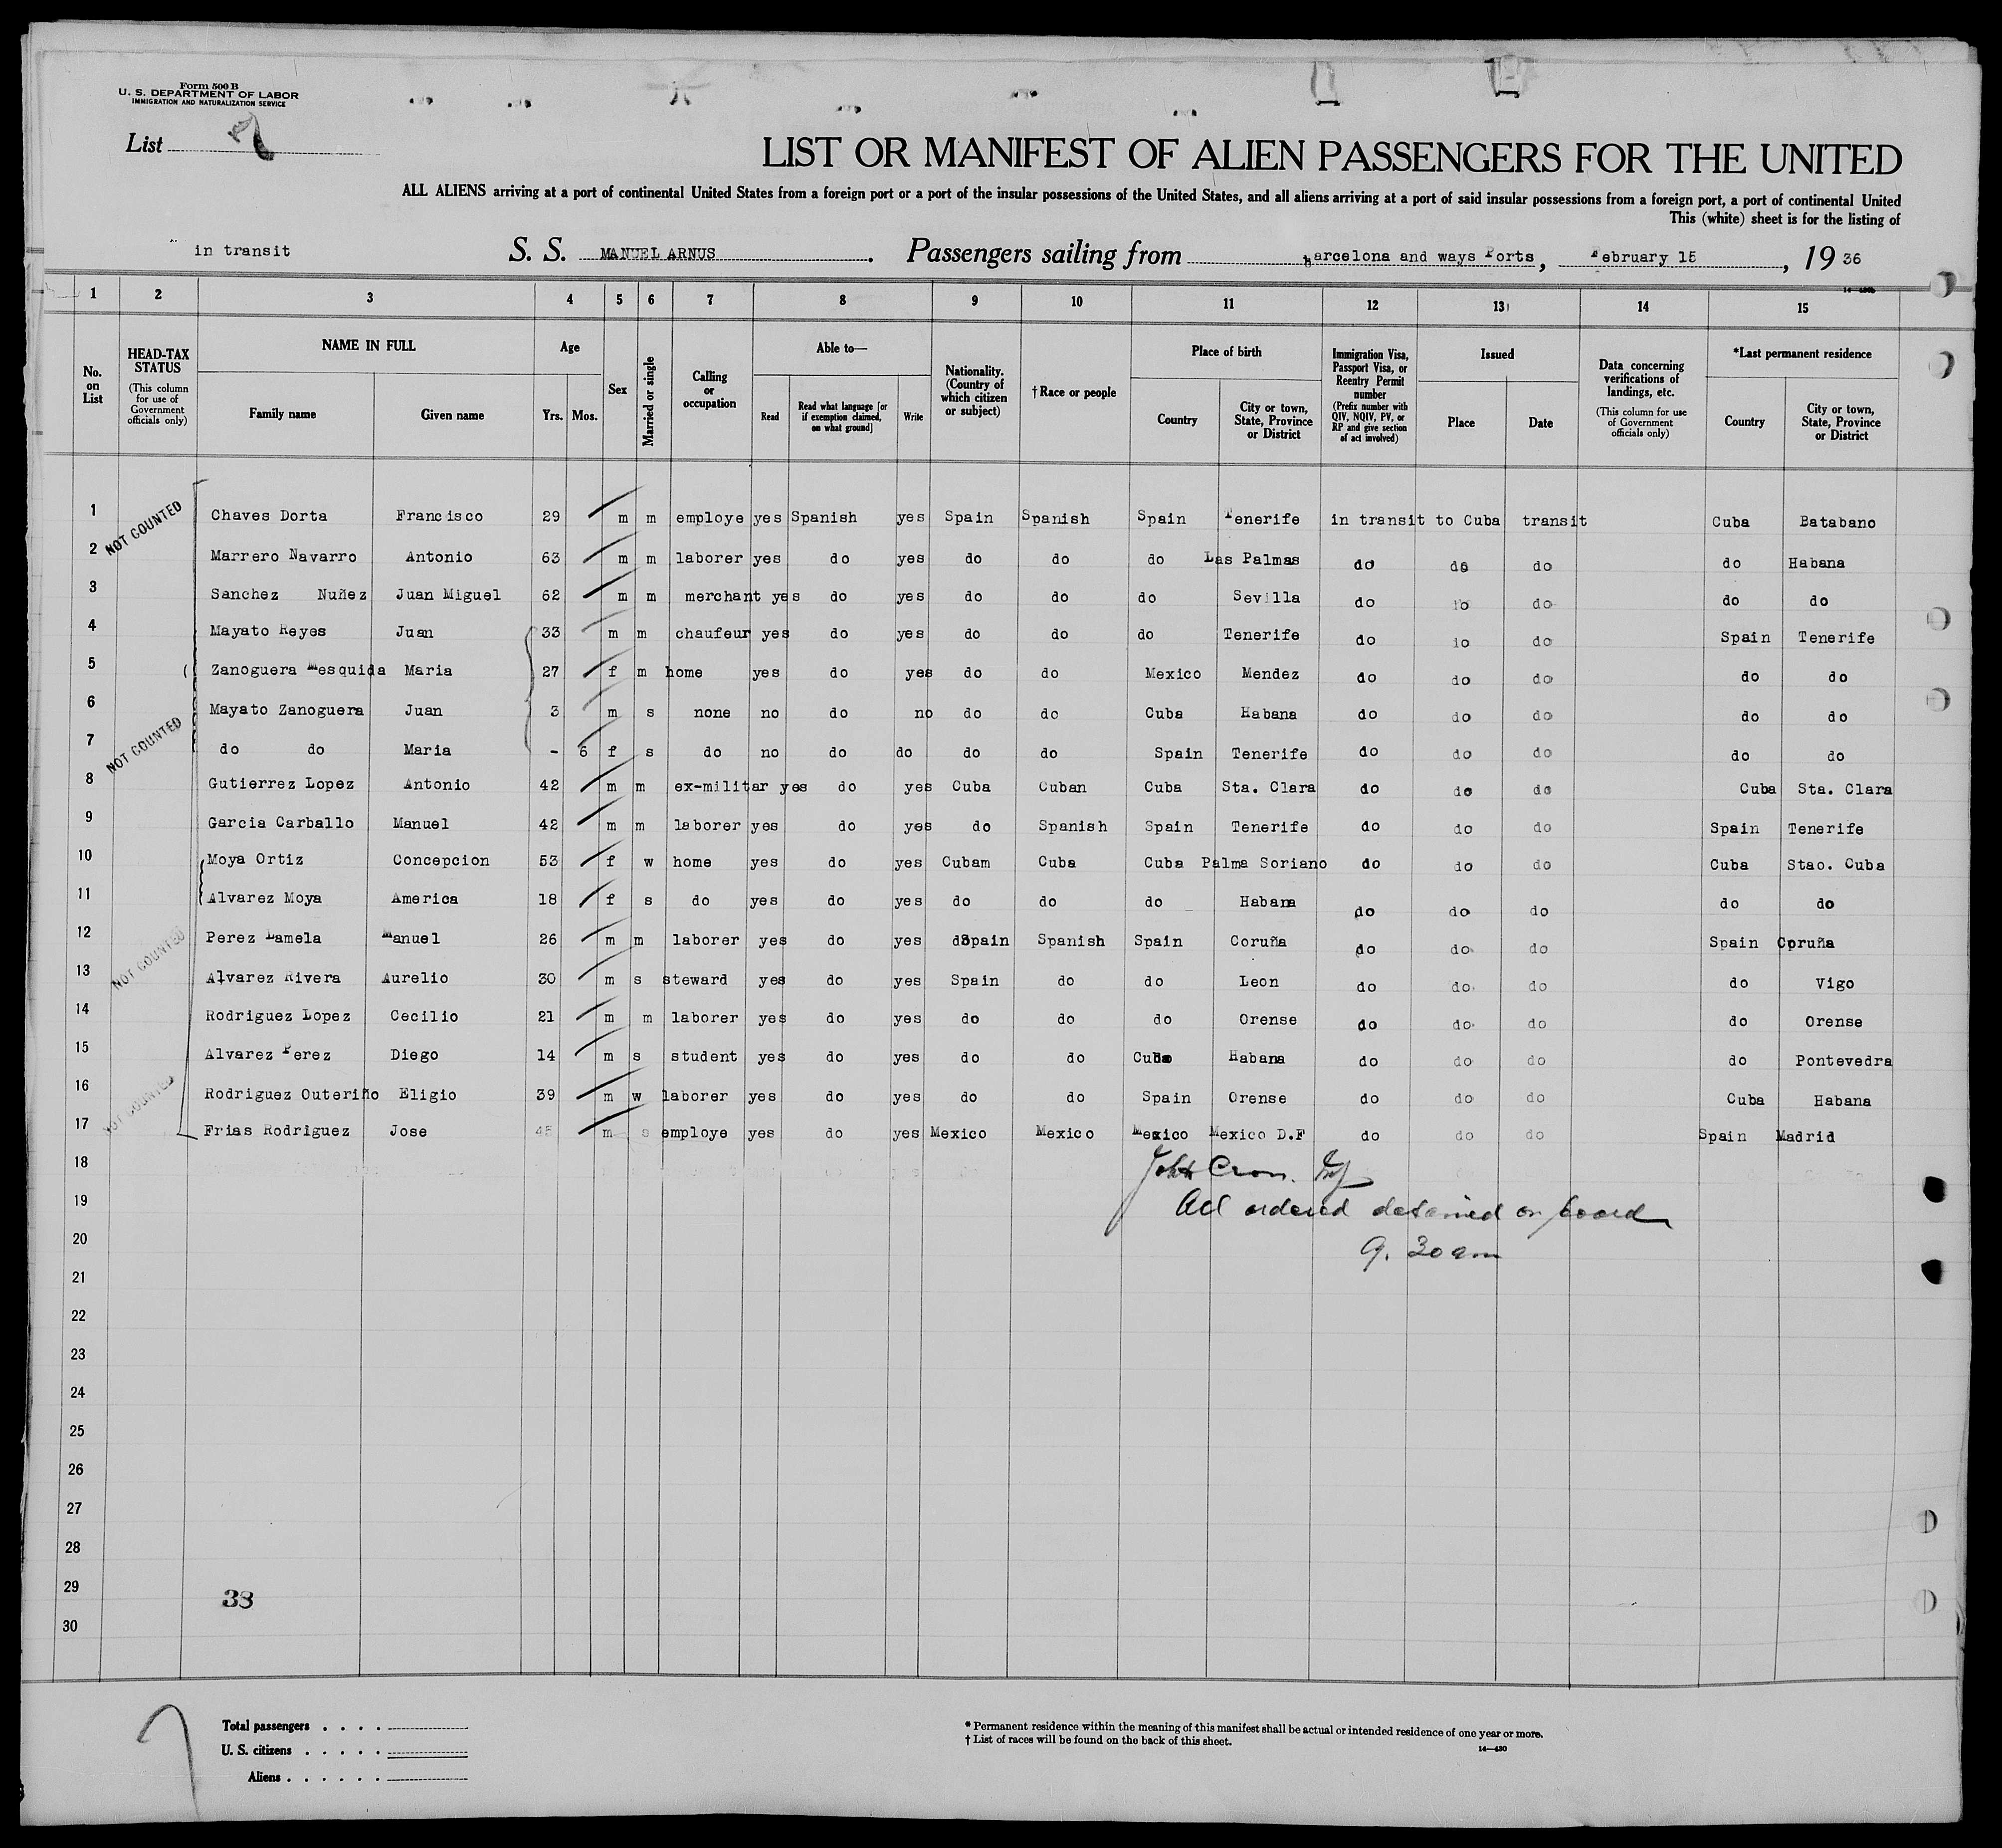 Form 500 B
U. S. DEPARTMENT OF LABOR
IMMIGRATION AND NATURALIZATION SERVICE
List
LIST OR MANIFEST OF ALIEN PASSENGERS FOR THE UNITED
ALL ALIENS arriving at a port of continental United States from a foreign port or a port of the insular possessions of the United States, and all aliens arriving at a port of said insular possessions from a foreign port, a port of continental United
This (white) sheet is for the listing of
in transit S. S. MANUEL ARNUS. Passengers sailing from Barcelona and ways Ports, February 15, 1936
1 2 3 4 5 6 7 8 9 10 11 12 13 14 15
No. on List
HEAD-TAX STATUS (This column for use of Government officials only)
NAME IN FULL Family name Given name
Age Yrs. Mos.
Sex
Married or single
Calling or occupation
Able to— Read Read what language [or if exemption claimed, on what ground] Write
Nationality. (Country of which citizen or subject)
† Race or people
Place of birth Country City or town, State, Province or District
Immigration Visa, Passport Visa, or Reentry Permit number (Prefix number with QIV, NQIV, PV, or RP and give section of act involved)
Issued Place Date
Data concerning verifications of landings, etc. (This column for use of Government officials only)
*Last permanent residence Country City or town, State, Province or District
1 NOT COUNTED Chaves Dorta Francisco 29 m m employe yes Spanish yes Spain Spanish Spain Tenerife in transit to Cuba transit Cuba Batabano
2 Marrero Navarro Antonio 63 m m laborer yes do yes do do do Las Palmas do do do do Habana
3 Sanchez Nuñez Juan Miguel 62 m m merchant yes do yes do do do Sevilla do do do do do
4 Mayato Reyes Juan 33 m m chaufeur yes do yes do do do Tenerife do do do Spain Tenerife
5 Zanoguera Mesquida Maria 27 f m home yes do yes do do Mexico Mendez do do do do do
6 Mayato Zanoguera Juan 3 m s none no do no do do Cuba Habana do do do do do
7 NOT COUNTED do do Maria - 6 f s do no do do do do Spain Tenerife do do do do do
8 Gutierrez Lopez Antonio 42 m m ex-militar yes do yes Cuba Cuban Cuba Sta. Clara do do do Cuba Sta. Clara
9 Garcia Carballo Manuel 42 m m laborer yes do yes do Spanish Spain Tenerife do do do Spain Tenerife
10 Moya Ortiz Concepcion 53 f w home yes do yes Cubam Cuba Cuba Palma Soriano do do do Cuba Stao. Cuba
11 Alvarez Moya America 18 f s do yes do yes do do do Habana do do do do do
12 NOT COUNTED Perez Lamela Manuel 26 m m laborer yes do yes Spain Spanish Spain Coruña do do do Spain Coruña
13 Alvarez Rivera Aurelio 30 m s steward yes do yes Spain do do Leon do do do do Vigo
14 Rodriguez Lopez Cecilio 21 m m laborer yes do yes do do do Orense do do do do Orense
15 Alvarez Perez Diego 14 m s student yes do yes do do Cuba Habana do do do do Pontevedra
16 NOT COUNTED Rodriguez Outeriño Eligio 39 m w laborer yes do yes do do Spain Orense do do do Cuba Habana
17 Frias Rodriguez Jose 45 m s employe yes do yes Mexico Mexico Mexico Mexico D.F do do do Spain Madrid
18 John
19 All ordered detained on board
20 9. 30 am
21
22
23
24
25
26
27
28
29 38
30
Total passengers . . . .
U. S. citizens . . . . .
Aliens . . . . . .
* Permanent residence within the meaning of this manifest shall be actual or intended residence of one year or more.
† List of races will be found on the back of this sheet.
14—430